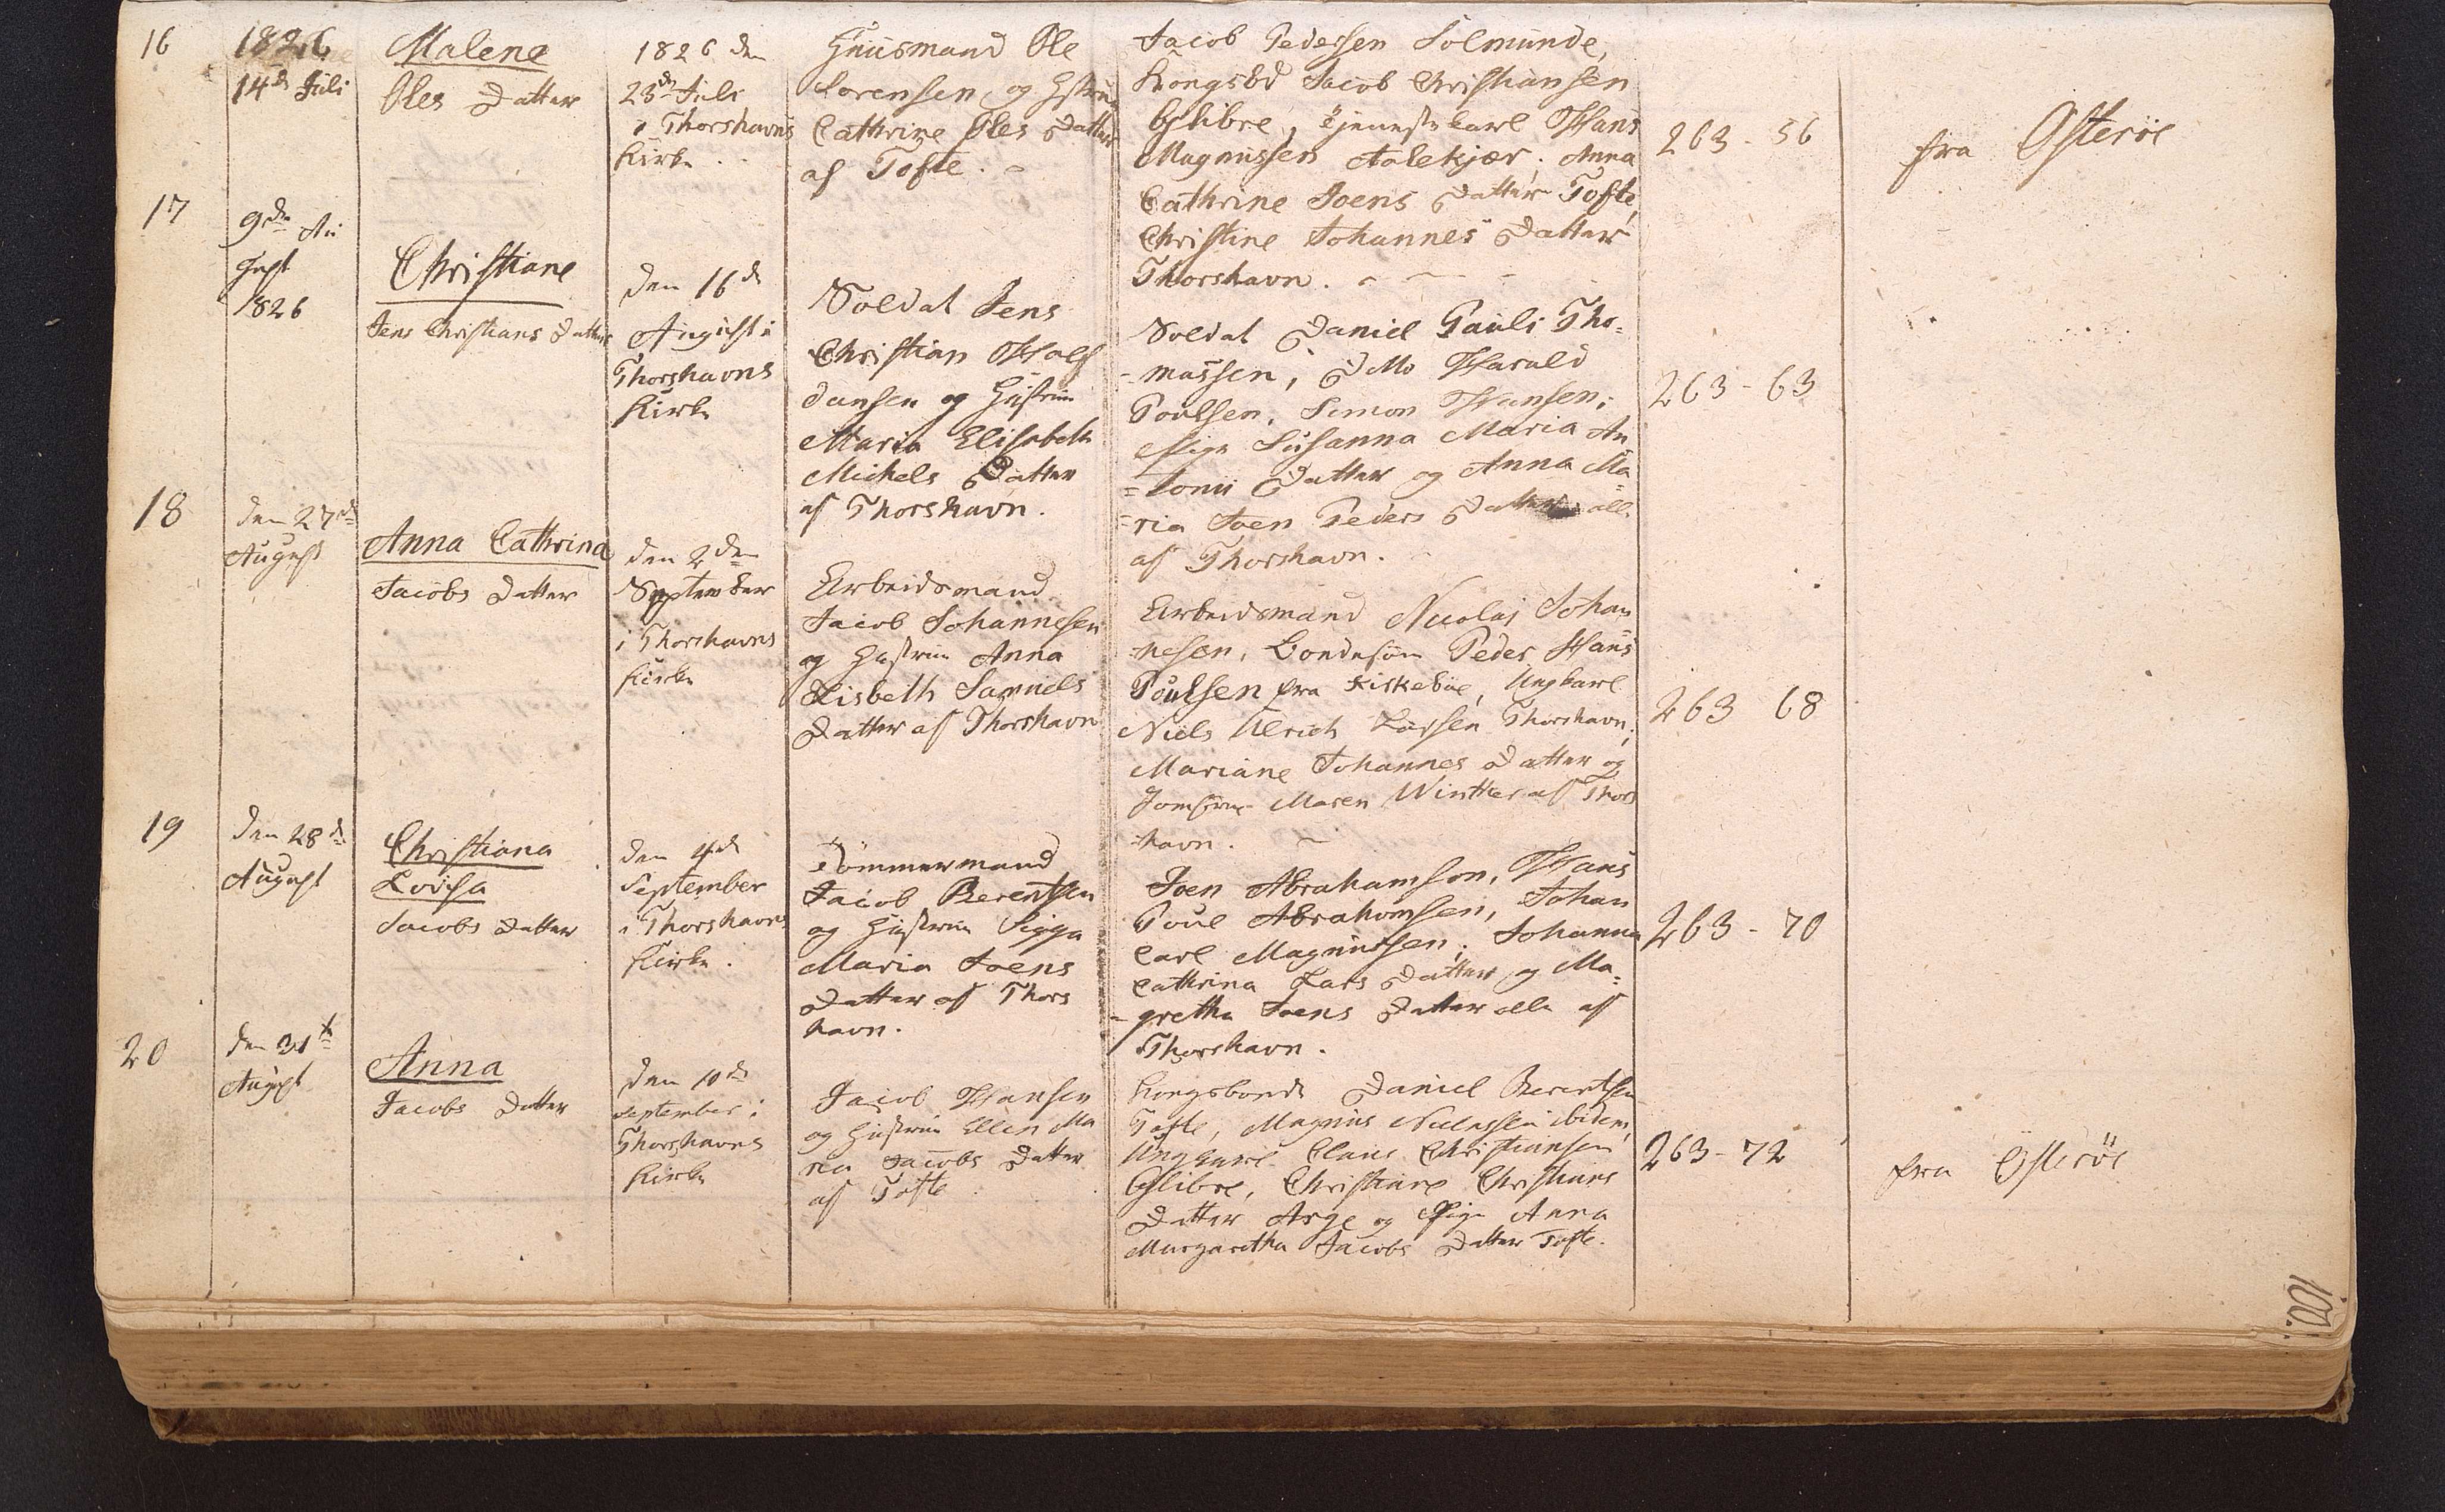 16
1826
14de Juli
Malene
Oles Datter
1826 den
23de Juli
i Thorshavns
Kirke
Huusmand Ole
Sørensen og Hstrue
Cathrine Oles Datter
af Tofte.
Jacob Pedersen Solmunde,
Kongsbd Jacob Christiansen
Glibre, Tjenestekarl Hans
Magnussen Aalekjær. Anna
Cathrine Joens Datter Tofte,
Christine Johannes Datter
Thorshavn.
263 - 56
fra Østerøe
17
9de Au
gust
1826
Christiane
Jens Christians Datter
den 16de
August i
Thorshavns
Kirke
Soldat Jens
Christian Half
dansen og Hustrue
Maria Elisabeth
Michels Datter
af Thorshavn.
Soldat Daniel Pauli Tho-
-massen, Do Harald
Poulsen, Simon Hansen;
Pige Susanna Maria An
=tonii Datter og Anna Ma
=ria Joen Peders Datter alle
af Thorshavn.
263 - 63
18
den 27de
August
Anna Cathrina
Jacobs Datter
den 2den
September
i Thorshavns
Kirke
Arbeidsmand
Jacob Johannesen
og Hustrue Anna
Lisbeth Samuels
Datter af Thorshavn
Arbeidsmand Nicolai Johan
nesen, Bondesøn Peder Hans
Poulsen fra Kirkebøe, Ungkarl
Niels Ulrich Larsen Thorshavn;
Mariane Johannes Datter og
Jomfrue Maren Winther af Thors
havn.
263 68
19
den 28de
August
Christiana
Lovisa
Jacobs Datter
den 4de
September
i Thorshavns
Kirke.
Tömmermand
Jacob Berentsen
og Hustrue Sigga
Maria Joens
Datter af Thors
havn.
Joen Abrahamson, Hans
Poul Abrahamsen, Johan
Carl Magnussen; Johanna
Cathrina Lars Datter og Ma=
-gretha Joens Datter alle af
Thorshavn.
263 - 70
20
den 31te
August
Anna
Jacobs Datter
den 10de
September i
Thorshavns
Kirke
Jacob Hansen
og Hustrue Ellen Ma
ria Jacobs Datter
af Tofte
Kongsbonde Daniel Berentsen
Tofte, Magnus Niclassen ibidem,
Ungkarl Claus Christiansen
Glibre, Christiane Christians
Datter Arge og Pige Anna
Margaretha Jacobs Datter Tofte.
263 - 72
fra Österöe
100.